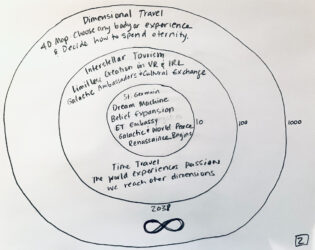 Dimensional Travel
4D Map Choose any body or experience
& Decide how to spend eternity.
Interstellar Tourism
Limitless Creation in VR & IRL
Galactic Ambassadors & Cultural Exchange
St. Germain
Dream Machine
Belief Expansion
ET Embassy
Galactic & World Peace
Renaissance Begins
10
100
1000
Time Travel
The world experiences Passion
we reach other dimensions
2038
2